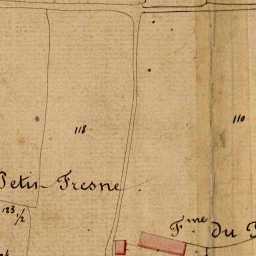 118
110
Petit Fresne
133 1/2
F.me du